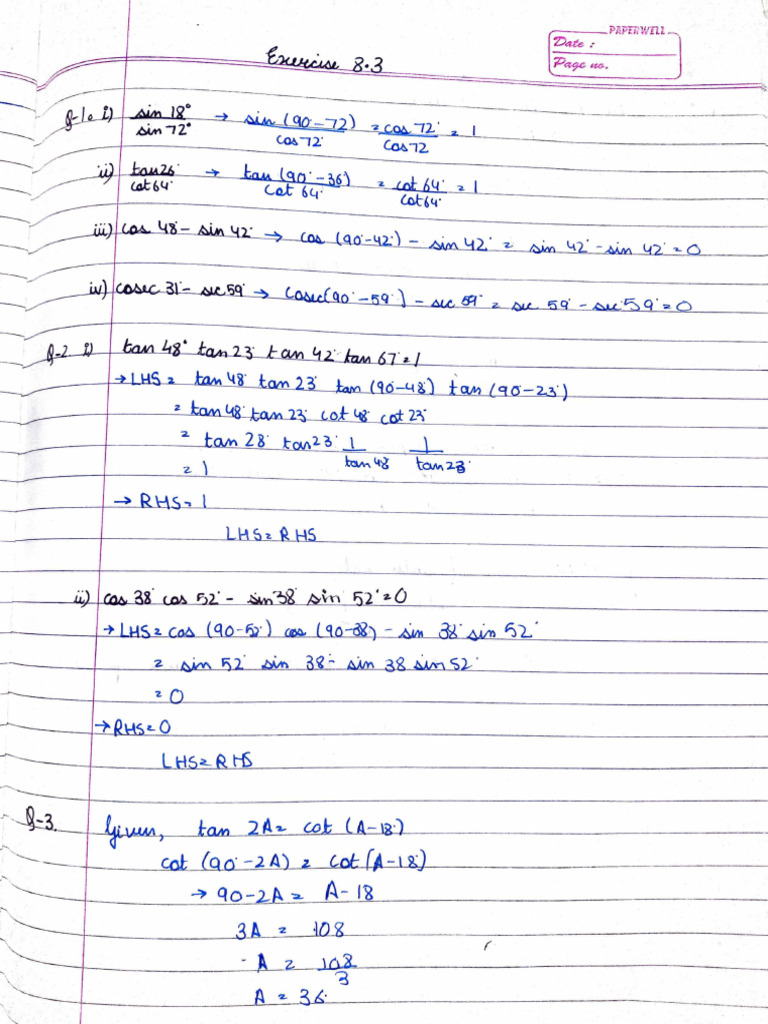 PAPERWELL
Date :
Page no.
Exercise 8.3
Q-1. i) sin 18° / sin 72° → sin (90°-72) / cos 72° = cos 72° / cos 72 = 1
ii) tan 26° / cot 64° → tan (90°-36) / cot 64° = cot 64° / cot 64° = 1
iii) cos 48° - sin 42° → cos (90°-42°) - sin 42° = sin 42° - sin 42° = 0
iv) cosec 31° - sec 59° → cosec(90°-59°) - sec 59° = sec 59° - sec 59° = 0
Q-2 i) tan 48° tan 23° tan 42° tan 67° = 1
→ LHS = tan 48° tan 23° tan (90-48°) tan (90-23°)
= tan 48° tan 23° cot 48° cot 23°
= tan 28° tan 23° 1/tan 48° 1/tan 23°
= 1
→ RHS = 1
LHS = RHS
ii) cos 38° cos 52° - sin 38° sin 52° = 0
→ LHS = cos (90-52°) cos (90-38) - sin 38° sin 52°
= sin 52° sin 38° - sin 38 sin 52°
= 0
→ RHS = 0
LHS = RHS
Q-3. Given, tan 2A = cot (A-18°)
cot (90°-2A) = cot (A-18°)
→ 90-2A = A-18
3A = 108
A = 108/3
A = 36°